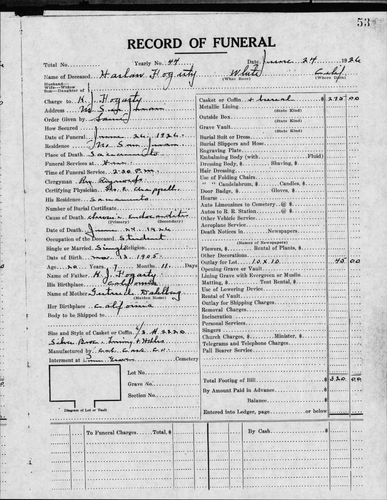 53
RECORD OF FUNERAL
Total No. Yearly No. 44 Date June 24 1926
Name of Deceased Harlan Fogarty White Calif.
(What Race) (Where Born)
Husband—
Wife—Widow
Son—Daughter of
Charge to H. J. Fogarty
Address No. San Juan
Order Given by Family
How Secured
Date of Funeral June 26, 1926.
Residence No. San Juan
Place of Death Sacramento
Funeral Services at
Time of Funeral Service 2:30 P.M.
Clergyman Rev.
Certifying Physician
His Residence Sacramento
Number of Burial Certificate
Cause of Death Chronic endocarditis
(Primary) (Secondary)
Date of Death June 24 1926
Occupation of the Deceased Student
Single or Married Single Religion
Date of Birth Nov. 13 1905.
Age 20 Years 7 Months 11 Days
Name of Father H. J. Fogarty
His Birthplace California
Name of Mother Gertrude
(Maiden Name)
Her Birthplace California
Body to be Shipped to
Size and Style of Casket or Coffin
Manufactured by
Interment at Cemetery
Lot No.
Grave No.
Section No.
Diagram of Lot or Vault
Casket or Coffin + burial $ 275 00
Metallic Lining
(State Kind)
Outside Box
(State Kind)
Grave Vault
(State Kind)
Burial Suit or Dress
Burial Slippers and Hose
Engraving Plate
Embalming Body (with Fluid)
Dressing Body, $ Shaving, $
Hair Dressing
Use of Folding Chairs
" " Candelabrum, $ Candles, $
Door Badge, $ Gloves, $
Hearse
Auto Limousines to Cemetery @ $
Autos to R. R. Station @ $
Other Vehicle Service
Aeroplane Service
Death Notices in Newspapers
(Names of Newspapers)
Flowers, $ Rental of Plants, $
Other Decorations
Outlay for Lot 10 X 10 45 00
Opening Grave or Vault
Lining Grave with Evergreen or Muslin
Matting, $ Tent Rental, $
Use of Lowering Device
Rental of Vault
Outlay for Shipping Charges
Removal Charges
Incineration
Personal Services
Singers
Church Charges, $ Minister, $
Telegrams and Telephone Charges
Pall Bearer Service
Total Footing of Bill $ 320 00
By Amount Paid in Advance
Balance
Entered into Ledger, page or below
To Funeral Charges Total By Cash $